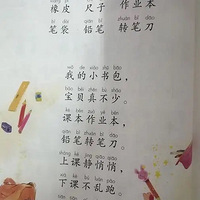 橡皮 尺子 作业本
bǐ dài qiān bǐ zhuàn bǐ dāo
笔袋 铅笔 转笔刀
wǒ de xiǎo shū bāo
我的小书包，
bǎo bèi zhēn bù shǎo
宝贝真不少。
kè běn zuò yè běn
课本作业本，
qiān bǐ zhuàn bǐ dāo
铅笔转笔刀。
shàng kè jìng qiāo qiāo
上课静悄悄，
xià kè bú luàn pǎo
下课不乱跑。